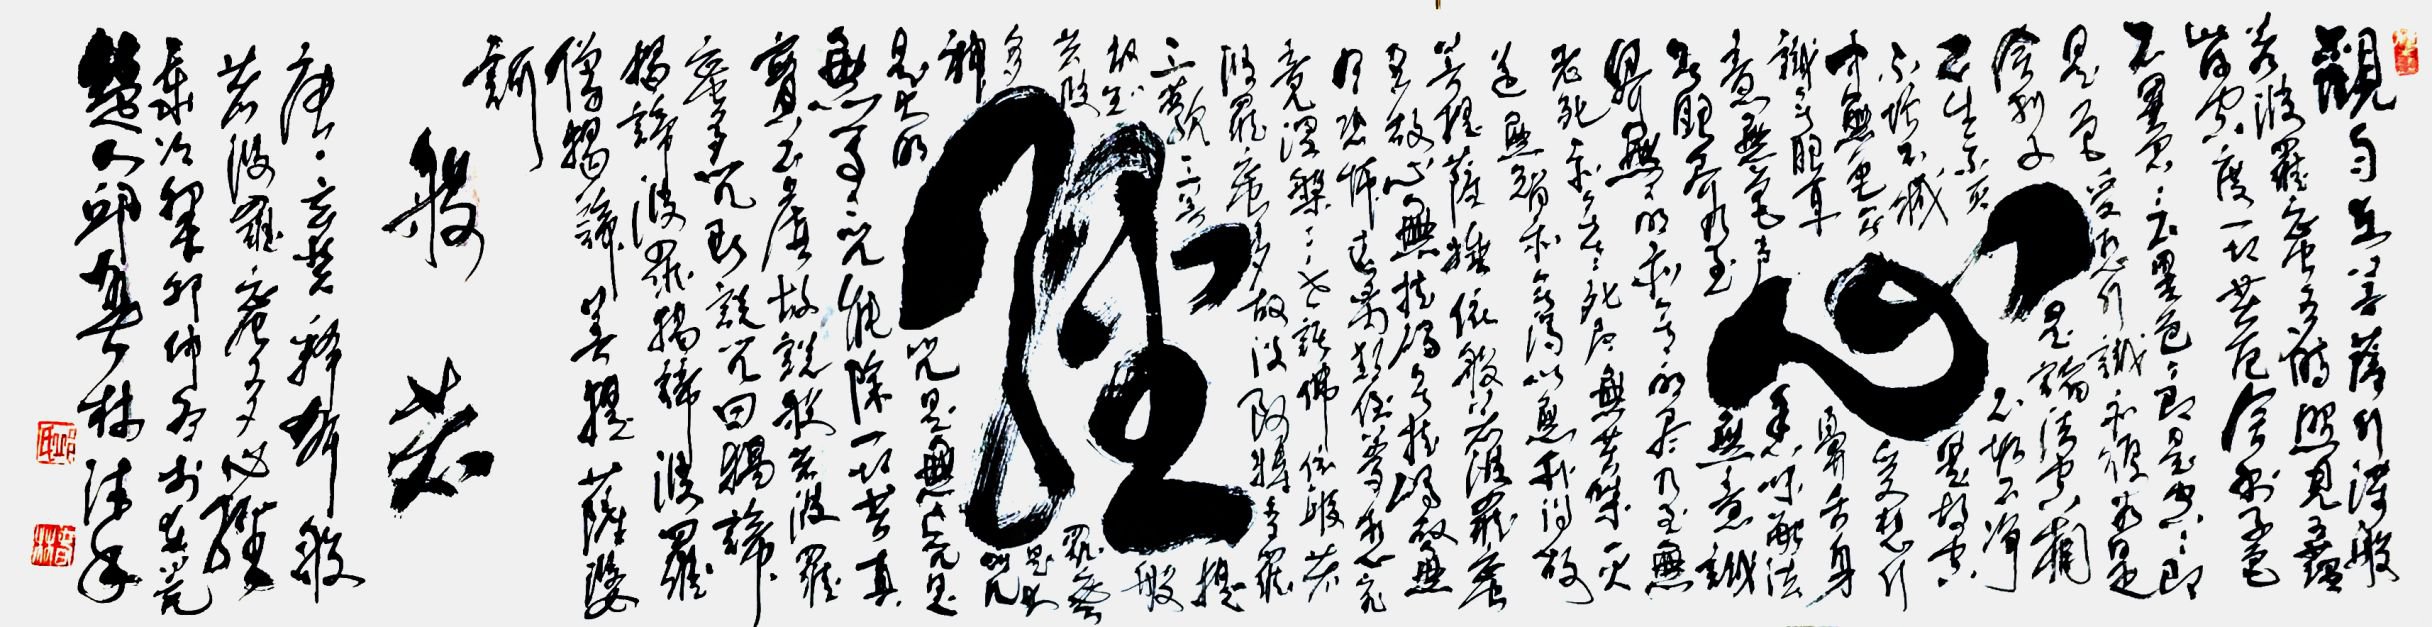 觀自在菩薩行深般
若波羅蜜多時照見五蘊
皆空度一切苦厄舍利子色
不異空空不異色色即是空空即
是色受想行識亦復如是
舍利子是諸法空相
不生不滅不垢不淨
不增不減是故空
中無色無受想行
識無眼耳鼻舌身
意無色聲香味觸法
無眼界乃至無意識
界無無明亦無無明盡乃至無
老死亦無老死盡無苦集滅
道無智亦無得以無所得故
菩提薩埵依般若波羅蜜
多故心無挂礙無挂礙故無
有恐怖遠離顛倒夢想究
竟涅槃三世諸佛依般若
波羅蜜多故得阿耨多羅
三藐三菩提
故知般
若波羅蜜
多是大
神咒
是大明咒是無上咒是
無等等咒能除一切苦真
實不虛故說般若波羅
蜜多咒即說咒曰揭諦
揭諦波羅揭諦波羅
僧揭諦菩提薩婆
訶
心經
般若
唐玄奘般
若波羅蜜多心經
歲次癸卯仲春於東莞
楚人邱普林
普林